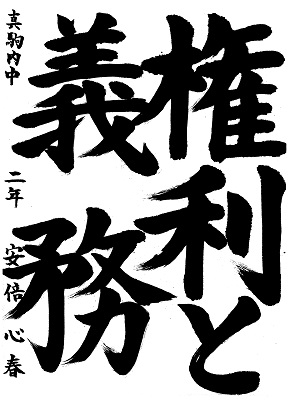 権利と
義務
真駒内中 二年 安倍心春